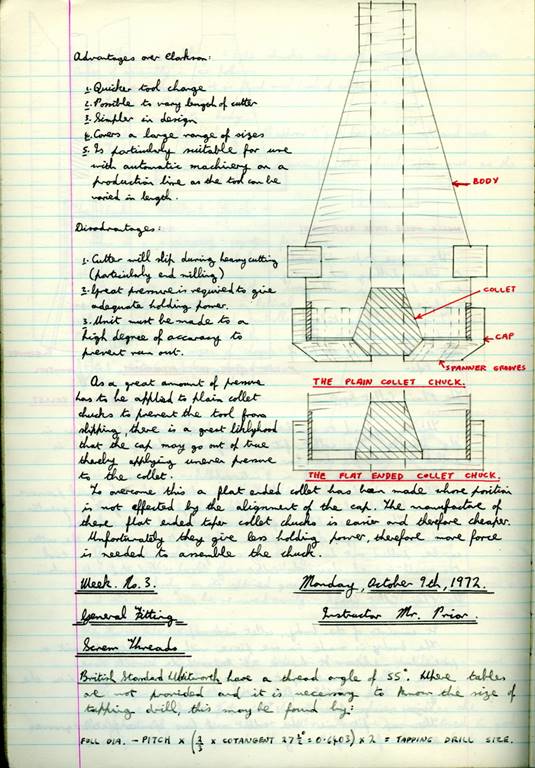 Advantages over Clarkson:
1. Quicker tool change
2. Possible to vary length of cutter
3. Simpler in design
4. Covers a large range of sizes
5. Is particularly suitable for use
with automatic machinery on a
production line as the tool can be
varied in length.
Disadvantages:
1. Cutter will slip during heavy cutting
(particularly end milling)
2. Great pressure is required to give
adequate holding power.
3. Unit must be made to a
high degree of accuracy to
prevent run out.
BODY
COLLET
CAP
SPANNER GROOVES
THE PLAIN COLLET CHUCK.
As a great amount of pressure
has to be applied to plain collet
chucks to prevent the tool from
slipping, there is a great liklyhood
that the cap may go out of true
thereby applying uneven pressure
to the collet.
THE FLAT ENDED COLLET CHUCK.
To overcome this a flat ended collet has been made whose position
is not effected by the alignment of the cap. The manufacture of
these flat ended taper collet chucks is easier and therfore cheaper.
Unfortunately they give less holding power, therefore more force
is needed to assemble the chuck.
Week. No. 3. Monday, October 9th, 1972.
General Fitting Instructor Mr. Prior.
Screw Threads
British Standard Whitworth have a thread angle of 55°. Where tables
are not provided and it is necessary to know the size of
tapping drill, this may be found by:
FULL DIA. - PITCH × (2/3 × COTANGENT 27½° = 0·6403) × 2 = TAPPING DRILL SIZE.